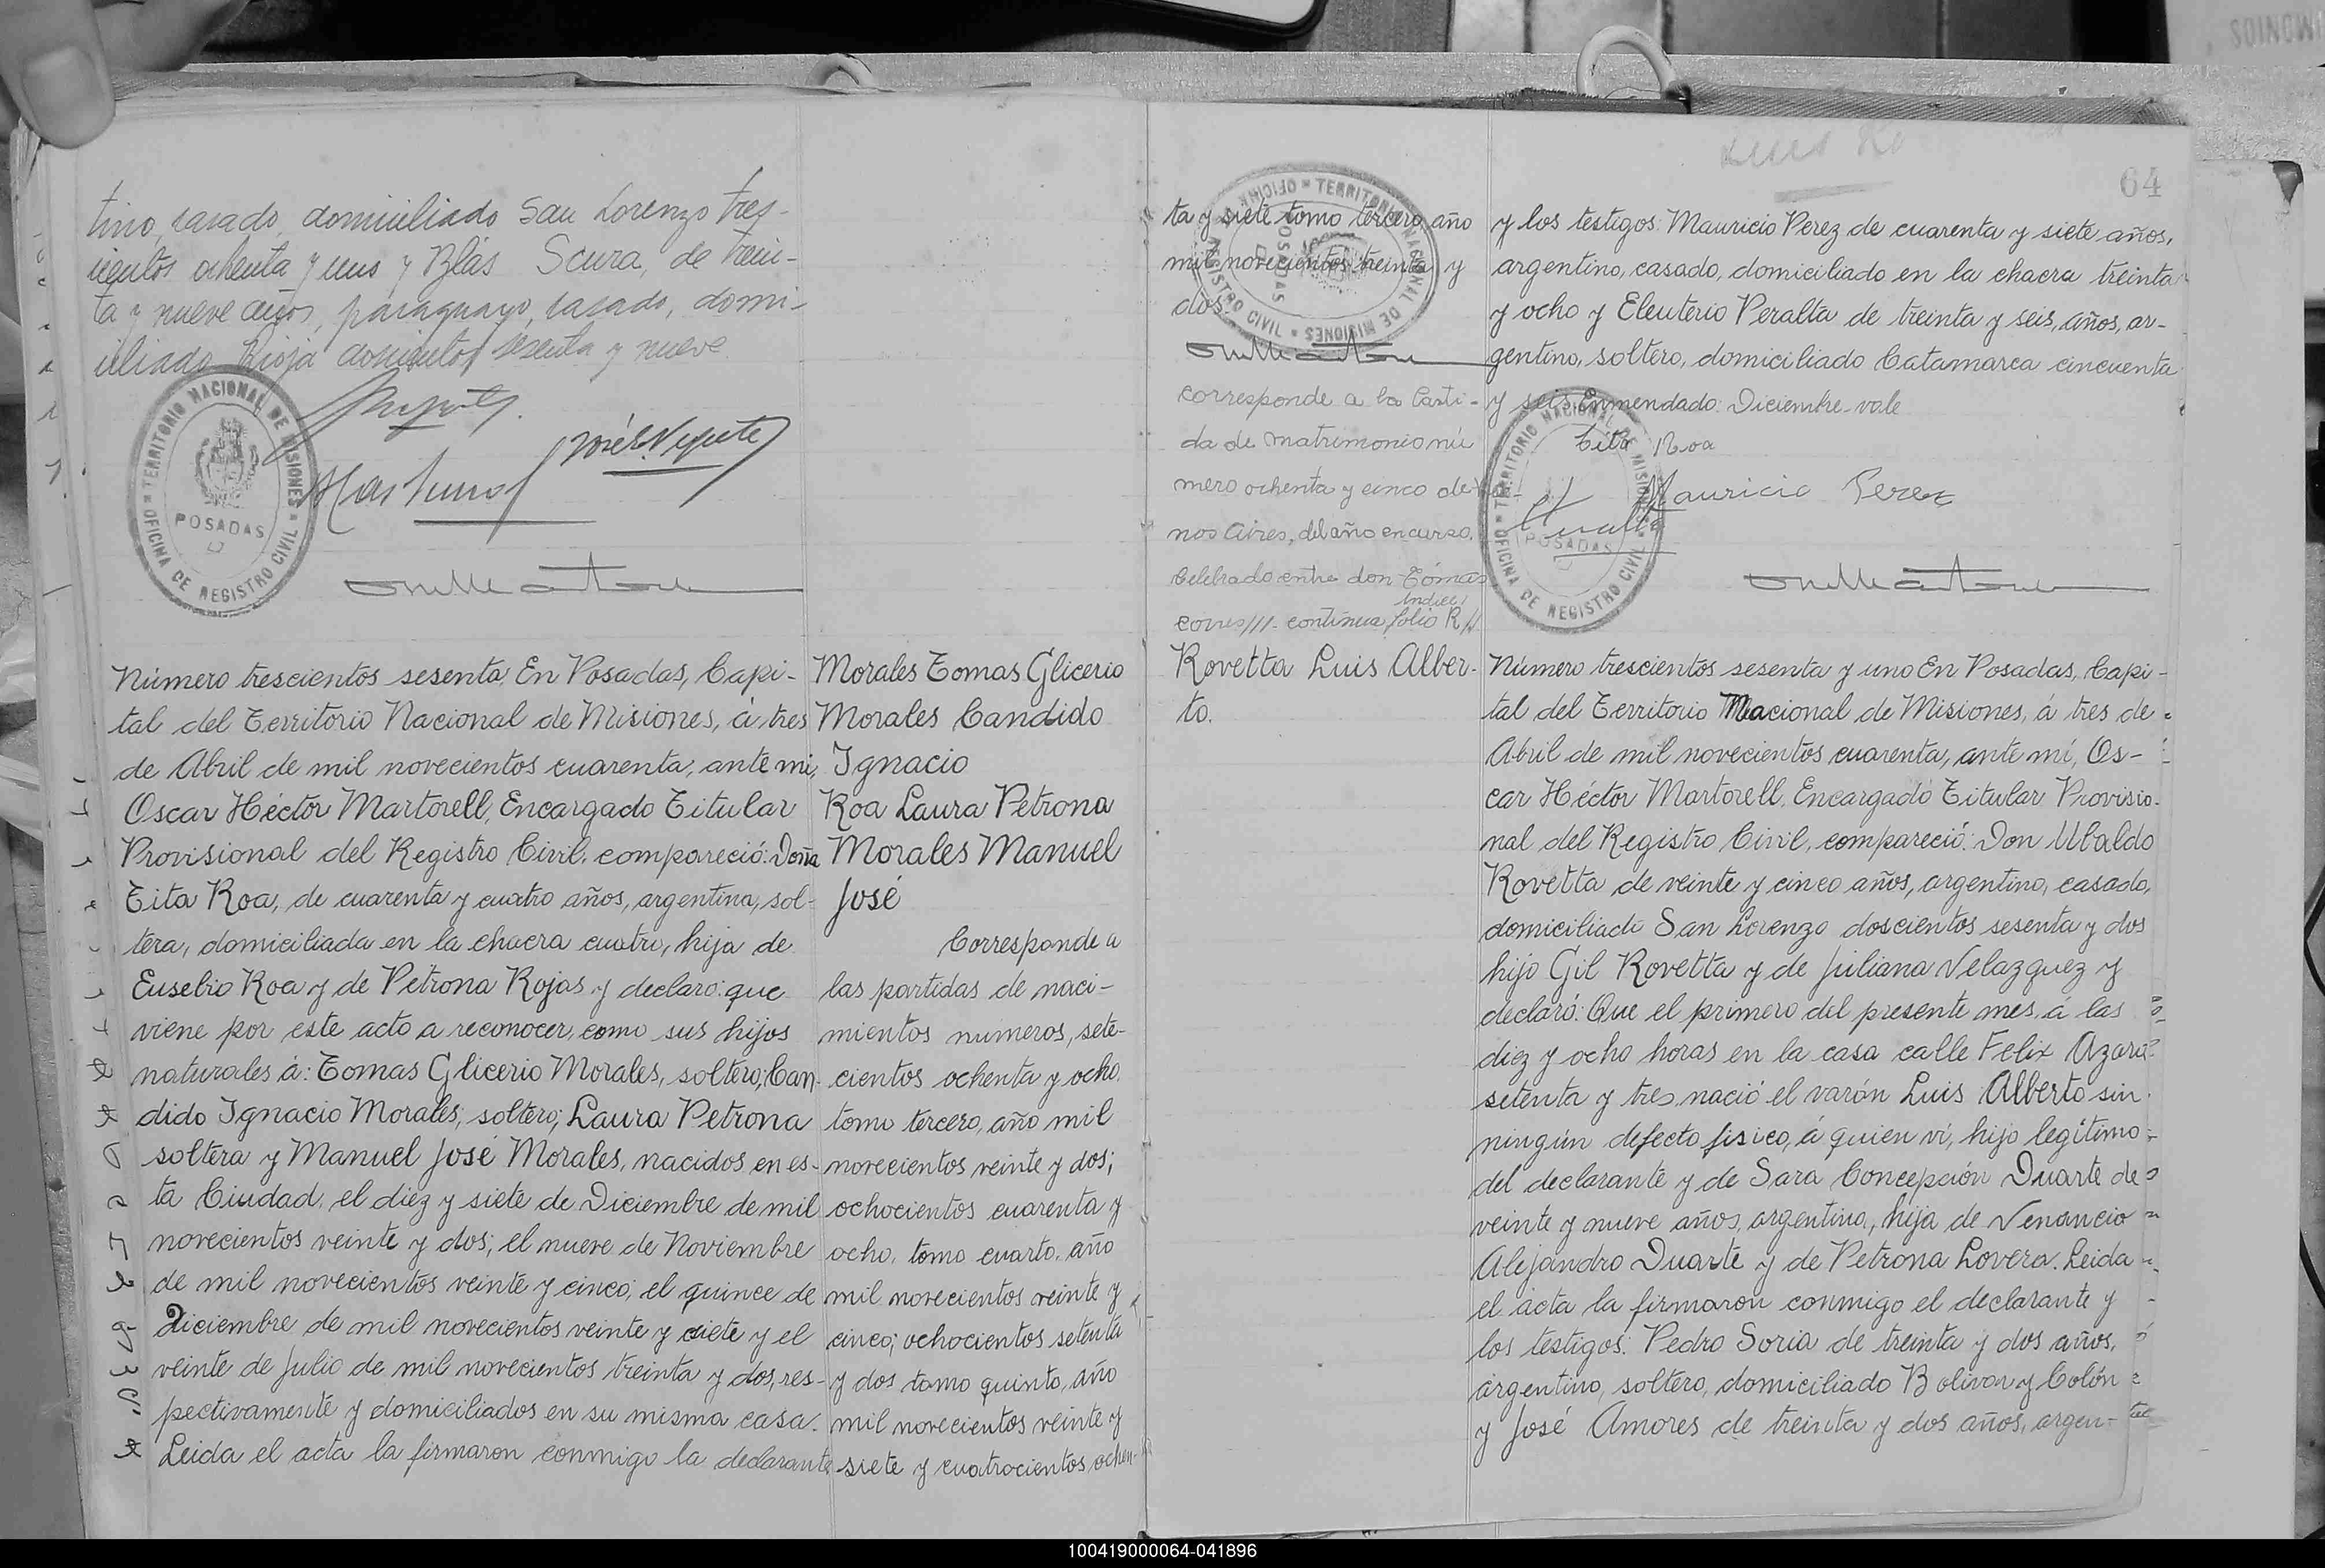 tino, casado, domiciliado San Lorenzo tres-
cientos ochenta y uno y Blás Scura, de trein-
ta y nueve años, paraguayo, casado, domi-
ciliado Rioja doscientos sesenta y nueve
TERRITORIO NACIONAL DE MISIONES
POSADAS
OFICINA DE REGISTRO CIVIL
Número trescientos sesenta En Posadas, Capi-
tal del Territorio Nacional de Misiones, á tres
de Abril de mil novecientos cuarenta, ante mi,
Oscar Héctor Martorell, Encargado Titular
Provisional del Registro Civil, compareció: Doña
Tita Roa, de cuarenta y cuatro años, argentina, sol-
tera, domiciliada en la chacra cuatro, hija de
Eusebio Roa y de Petrona Rojas y declaro: que
viene por este acto a reconocer, como sus hijos
naturales á: Tomas Glicerio Morales, soltero; Can-
dido Ignacio Morales, soltero; Laura Petrona
soltera y Manuel José Morales, nacidos en es-
ta Ciudad, el diez y siete de Diciembre de mil
novecientos veinte y dos; el nueve de Noviembre
de mil novecientos veinte y cinco; el quince de
Diciembre de mil novecientos veinte y siete y el
veinte de Julio de mil novecientos treinta y dos, res-
pectivamente y domiciliados en su misma casa.
Leida el acta la firmaron conmigo la declarante
Morales Tomas Glicerio
Morales Candido
Ignacio
Roa Laura Petrona
Morales Manuel
José
Corresponde a
las partidas de naci-
mientos numeros, sete-
cientos ochenta y ocho.
tomo tercero, año mil
novecientos veinte y dos;
ochocientos cuarenta y
ocho, tomo cuarto, año
mil novecientos veinte y
cinco; ochocientos setenta
y dos tomo quinto, año
mil novecientos veinte y
siete y cuatrocientos ochen-
ta y siete tomo tercero, año
mil novecientos treinta y
dos.
TERRITORIO NACIONAL DE MISIONES
POSADAS
OFICINA DE REGISTRO CIVIL
corresponde a la Parti-
da de matrimonio nú
mero ochenta y cinco de Bue-
nos Aires, del año en curso.
Celebrado entre don Tómas
Indice
corres///- continua folio R //
64
y los testigos: Mauricio Perez de cuarenta y siete años,
argentino, casado, domiciliado en la chacra treinta
y ocho y Eleuterio Peralta de treinta y seis, años, ar-
gentino, soltero, domiciliado Catamarca cincuenta
y seis Enmendado: Diciembre-vale
Tita Roa
Mauricio Perez
TERRITORIO NACIONAL DE MISIONES
POSADAS
OFICINA DE REGISTRO CIVIL
Rovetta Luis Alber-
to.
Número trescientos sesenta y uno En Posadas, Capi-
tal del Territorio Nacional de Misiones, á tres de
Abril de mil novecientos cuarenta, ante mí, Os-
car Héctor Martorell, Encargado Titular Provisio-
nal del Registro Civil, compareció: Don Ubaldo
Rovetta de veinte y cinco años, argentino, casado,
domiciliado San Lorenzo doscientos sesenta y dos
hijo Gil Rovetta y de Juliana Velazquez y
declaró: Que el primero del presente mes, á las
diez y ocho horas en la casa calle Felix Azara
setenta y tres nació el varón Luis Alberto sin
ningún defecto fisico, á quien ví, hijo legítimo
del declarante y de Sara Concepción Duarte de
veinte y nueve años, argentina, hija de Venancio
Alejandro Duarte y de Petrona Lovera. Leida
el acta la firmaron conmigo el declarante y
los testigos: Pedro Soria de treinta y dos años,
argentino, soltero, domiciliado Bolivar y Colón
y José Amores de treinta y dos años, argen-
100419000064-041896